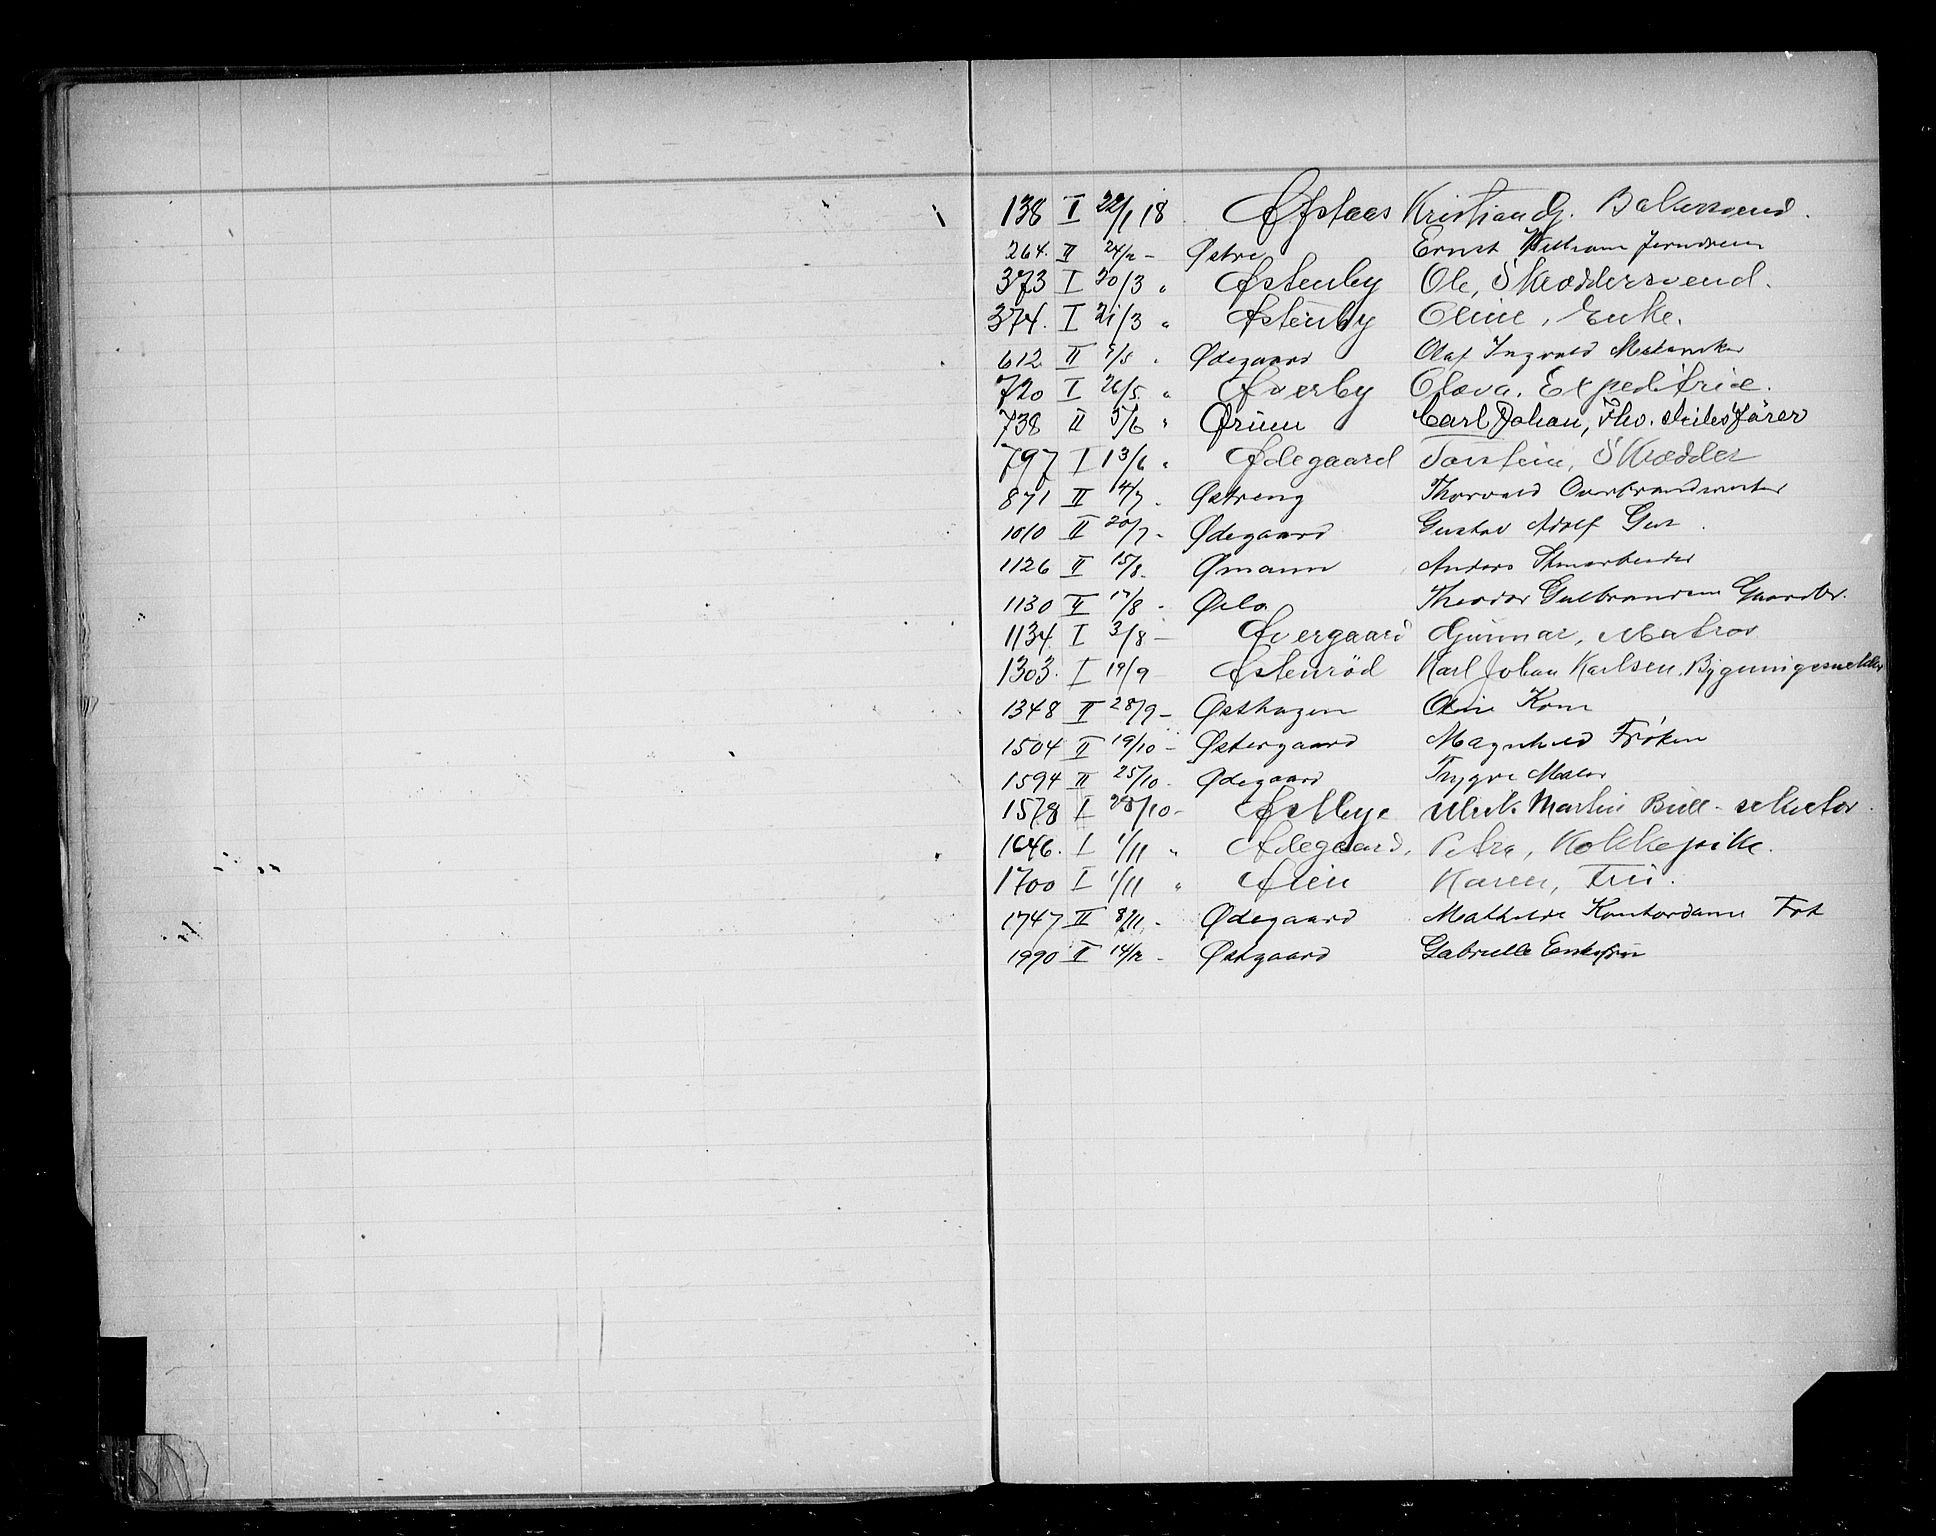 138 I 22/1 18 Øfstaas Kristian G. Bakersvend.
264. II 24/2 - Østre Ernst William Jerndreier
373 I 20/3 " Østenby Ole, Skræddersvend.
374. I 21/3 " Østenby Oline, Enke.
612 II 7/5 " Ødegaard Olaf Ingvald Mekaniker
720 I 26/5 " Øverby Olava. Expeditrice.
738 II 5/6 " Ørum Carl Johan, fhv. Skibsfører
797 I 13/6 " Ødegaard Torstein, Skrædder
871 II 14/7 " Østreng Thorvald Overbrandmester
1010 II 20/7 - Ødegaard Gustav Adolf Gut
1126 II 15/8 - Ømann Anders
1130 II 17/8 - Øilo Theodor Gulbrandsen Gaardbr.
1134. I 3/8 - Øvergaard Gunnar, Matros
1303. I 19/9 Østenröd Karl Johan Karlsen, Bygningssnekker
1348 II 28/9 - Østhagen Oline Kone
1504 II 19/10 - Østergaard Magnhild Frøken
1594 II 25/10 - Ødegaard Trygve Maler
1578 I 28/10 - Østbye Ulrik Martin Bull -
1646. I 1/11 " Ødegaard, Petra, Kokkepike.
1700 I 1/11 " Øien Karen, Fru.
1747 II 8/11 - Ødegaard Mathilde Kontordame Frk
1990 II 14/12 - Østgaard Gabrielle Enkefrue